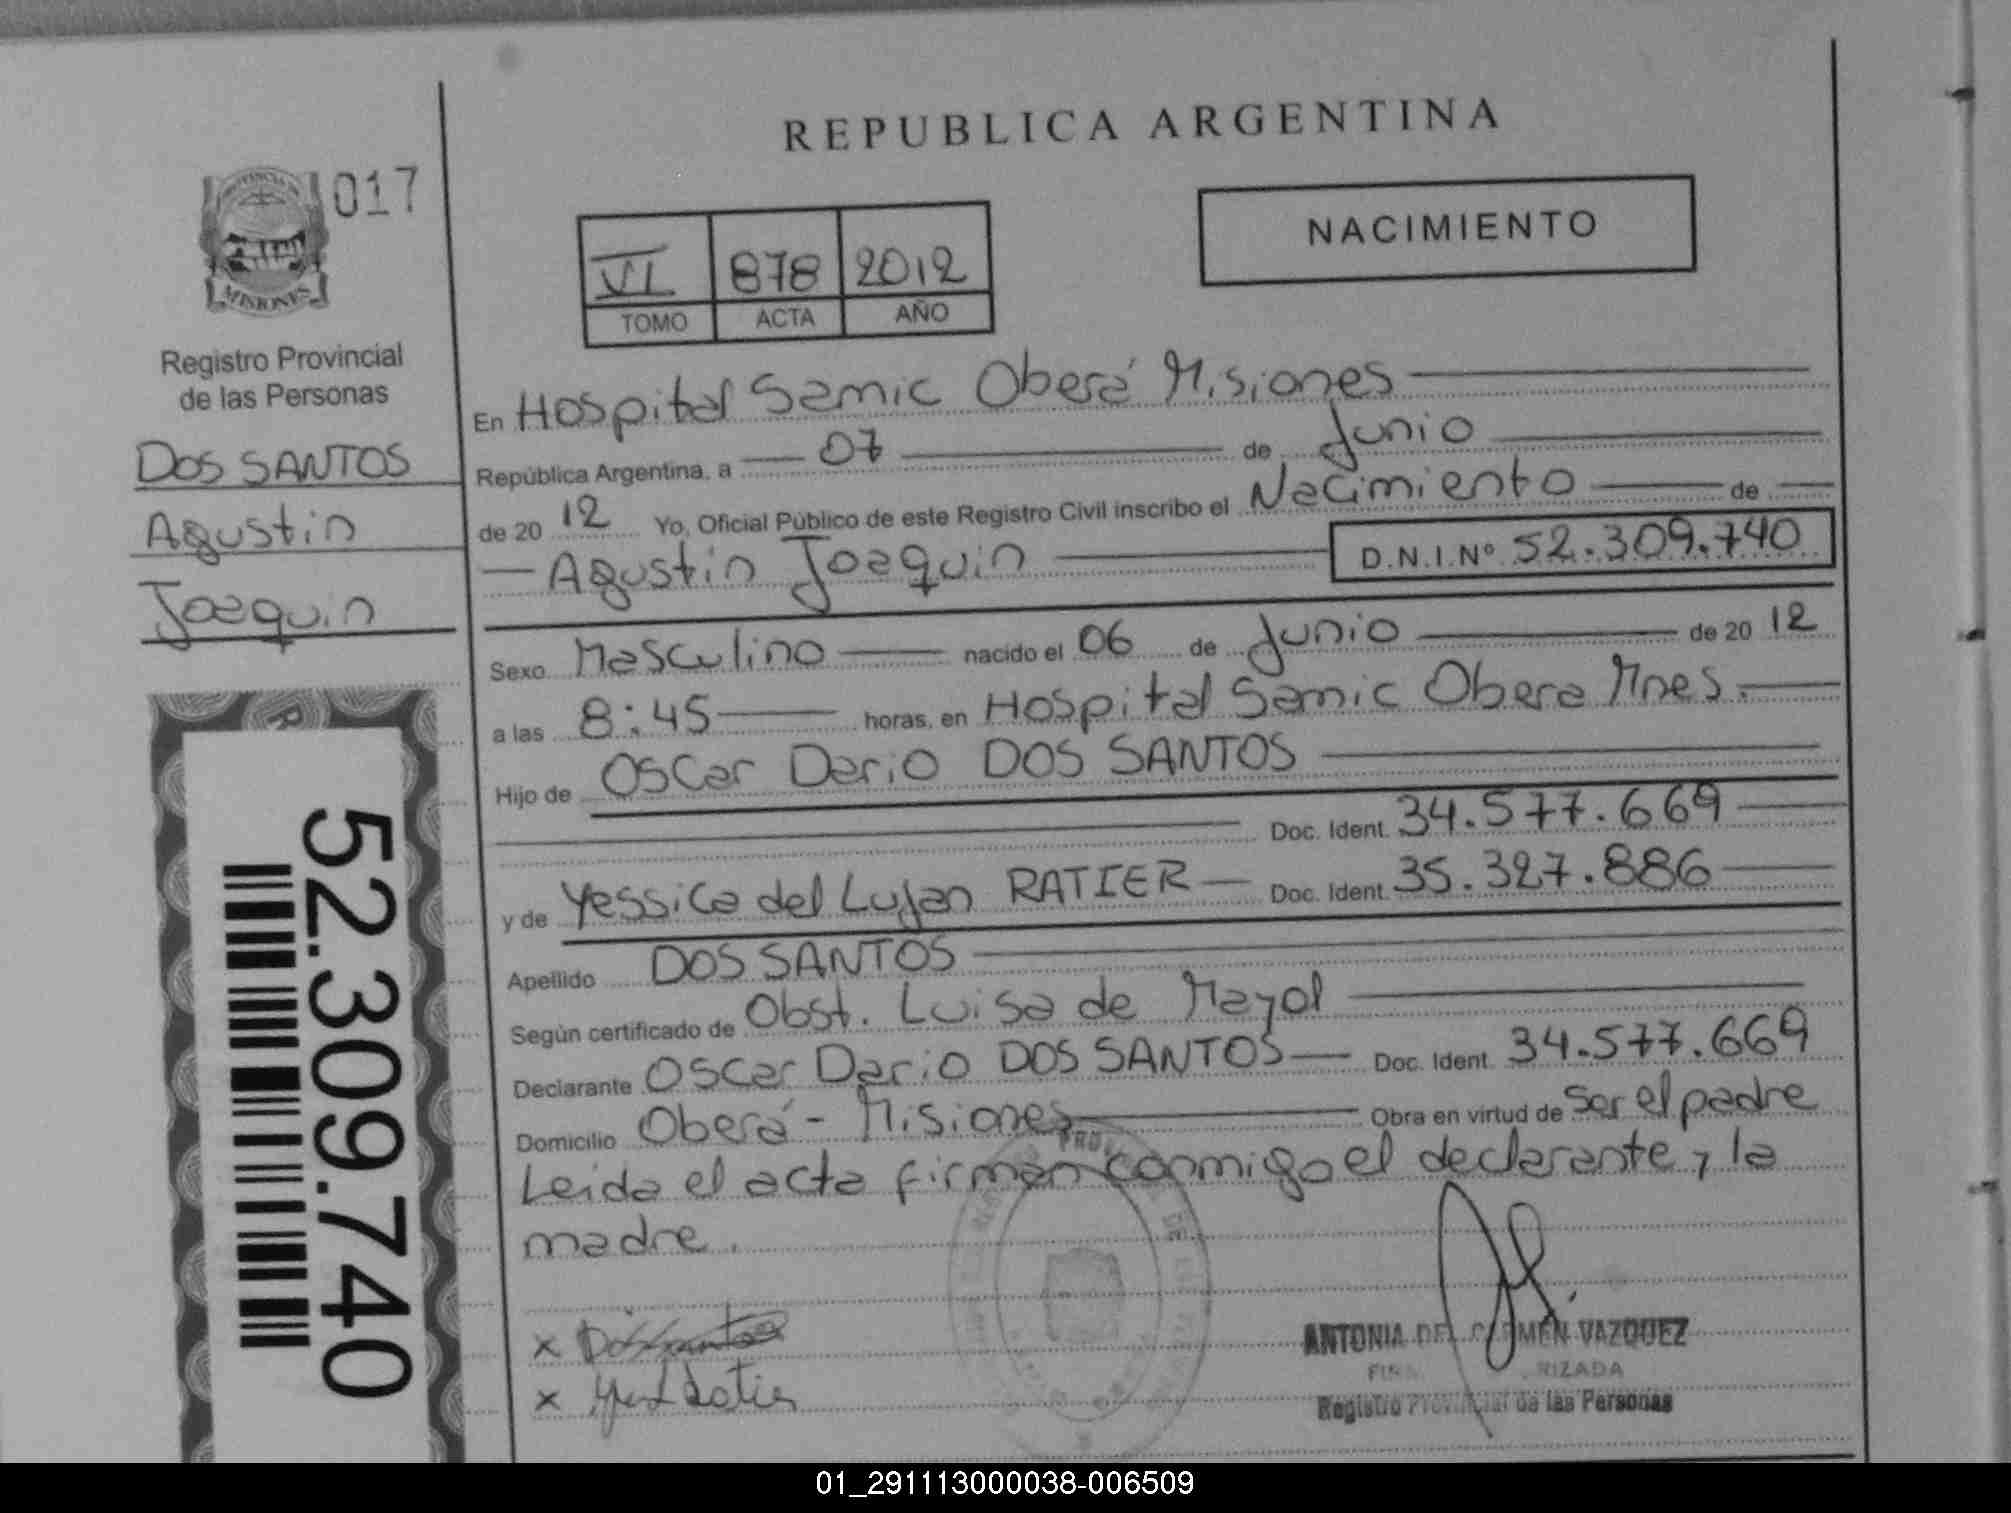 REPUBLICA ARGENTINA
PROVINCIA DE
MISIONES
017
Registro Provincial
de las Personas
DOS SANTOS
Agustin
Joaquin
52.309.740
VI 878 2012
TOMO ACTA AÑO
NACIMIENTO
En Hospital Samic Oberá Misiones
República Argentina, a 07 de Junio
de 20 12 Yo, Oficial Público de este Registro Civil inscribo el Nacimiento de
Agustin Joaquin D.N.I.Nº 52.309.740
Sexo Masculino nacido el 06 de Junio de 20 12
a las 8:45 horas, en Hospital Samic Obera Mnes.
Hijo de Oscar Dario DOS SANTOS
Doc. Ident. 34.577.669
y de Yessica del Lujan RATIER Doc. Ident. 35.327.886
Apellido DOS SANTOS
Según certificado de Obst. Luisa de Mayol
Declarante Oscar Dario DOS SANTOS Doc. Ident. 34.577.669
Domicilio Oberá - Misiones Obra en virtud de ser el padre
Leida el acta firman conmigo el declarante y la
madre.
x Dos Santos
x
ANTONIA DEL CARMEN VAZQUEZ
Registro Provincial de las Personas
01_291113000038-006509